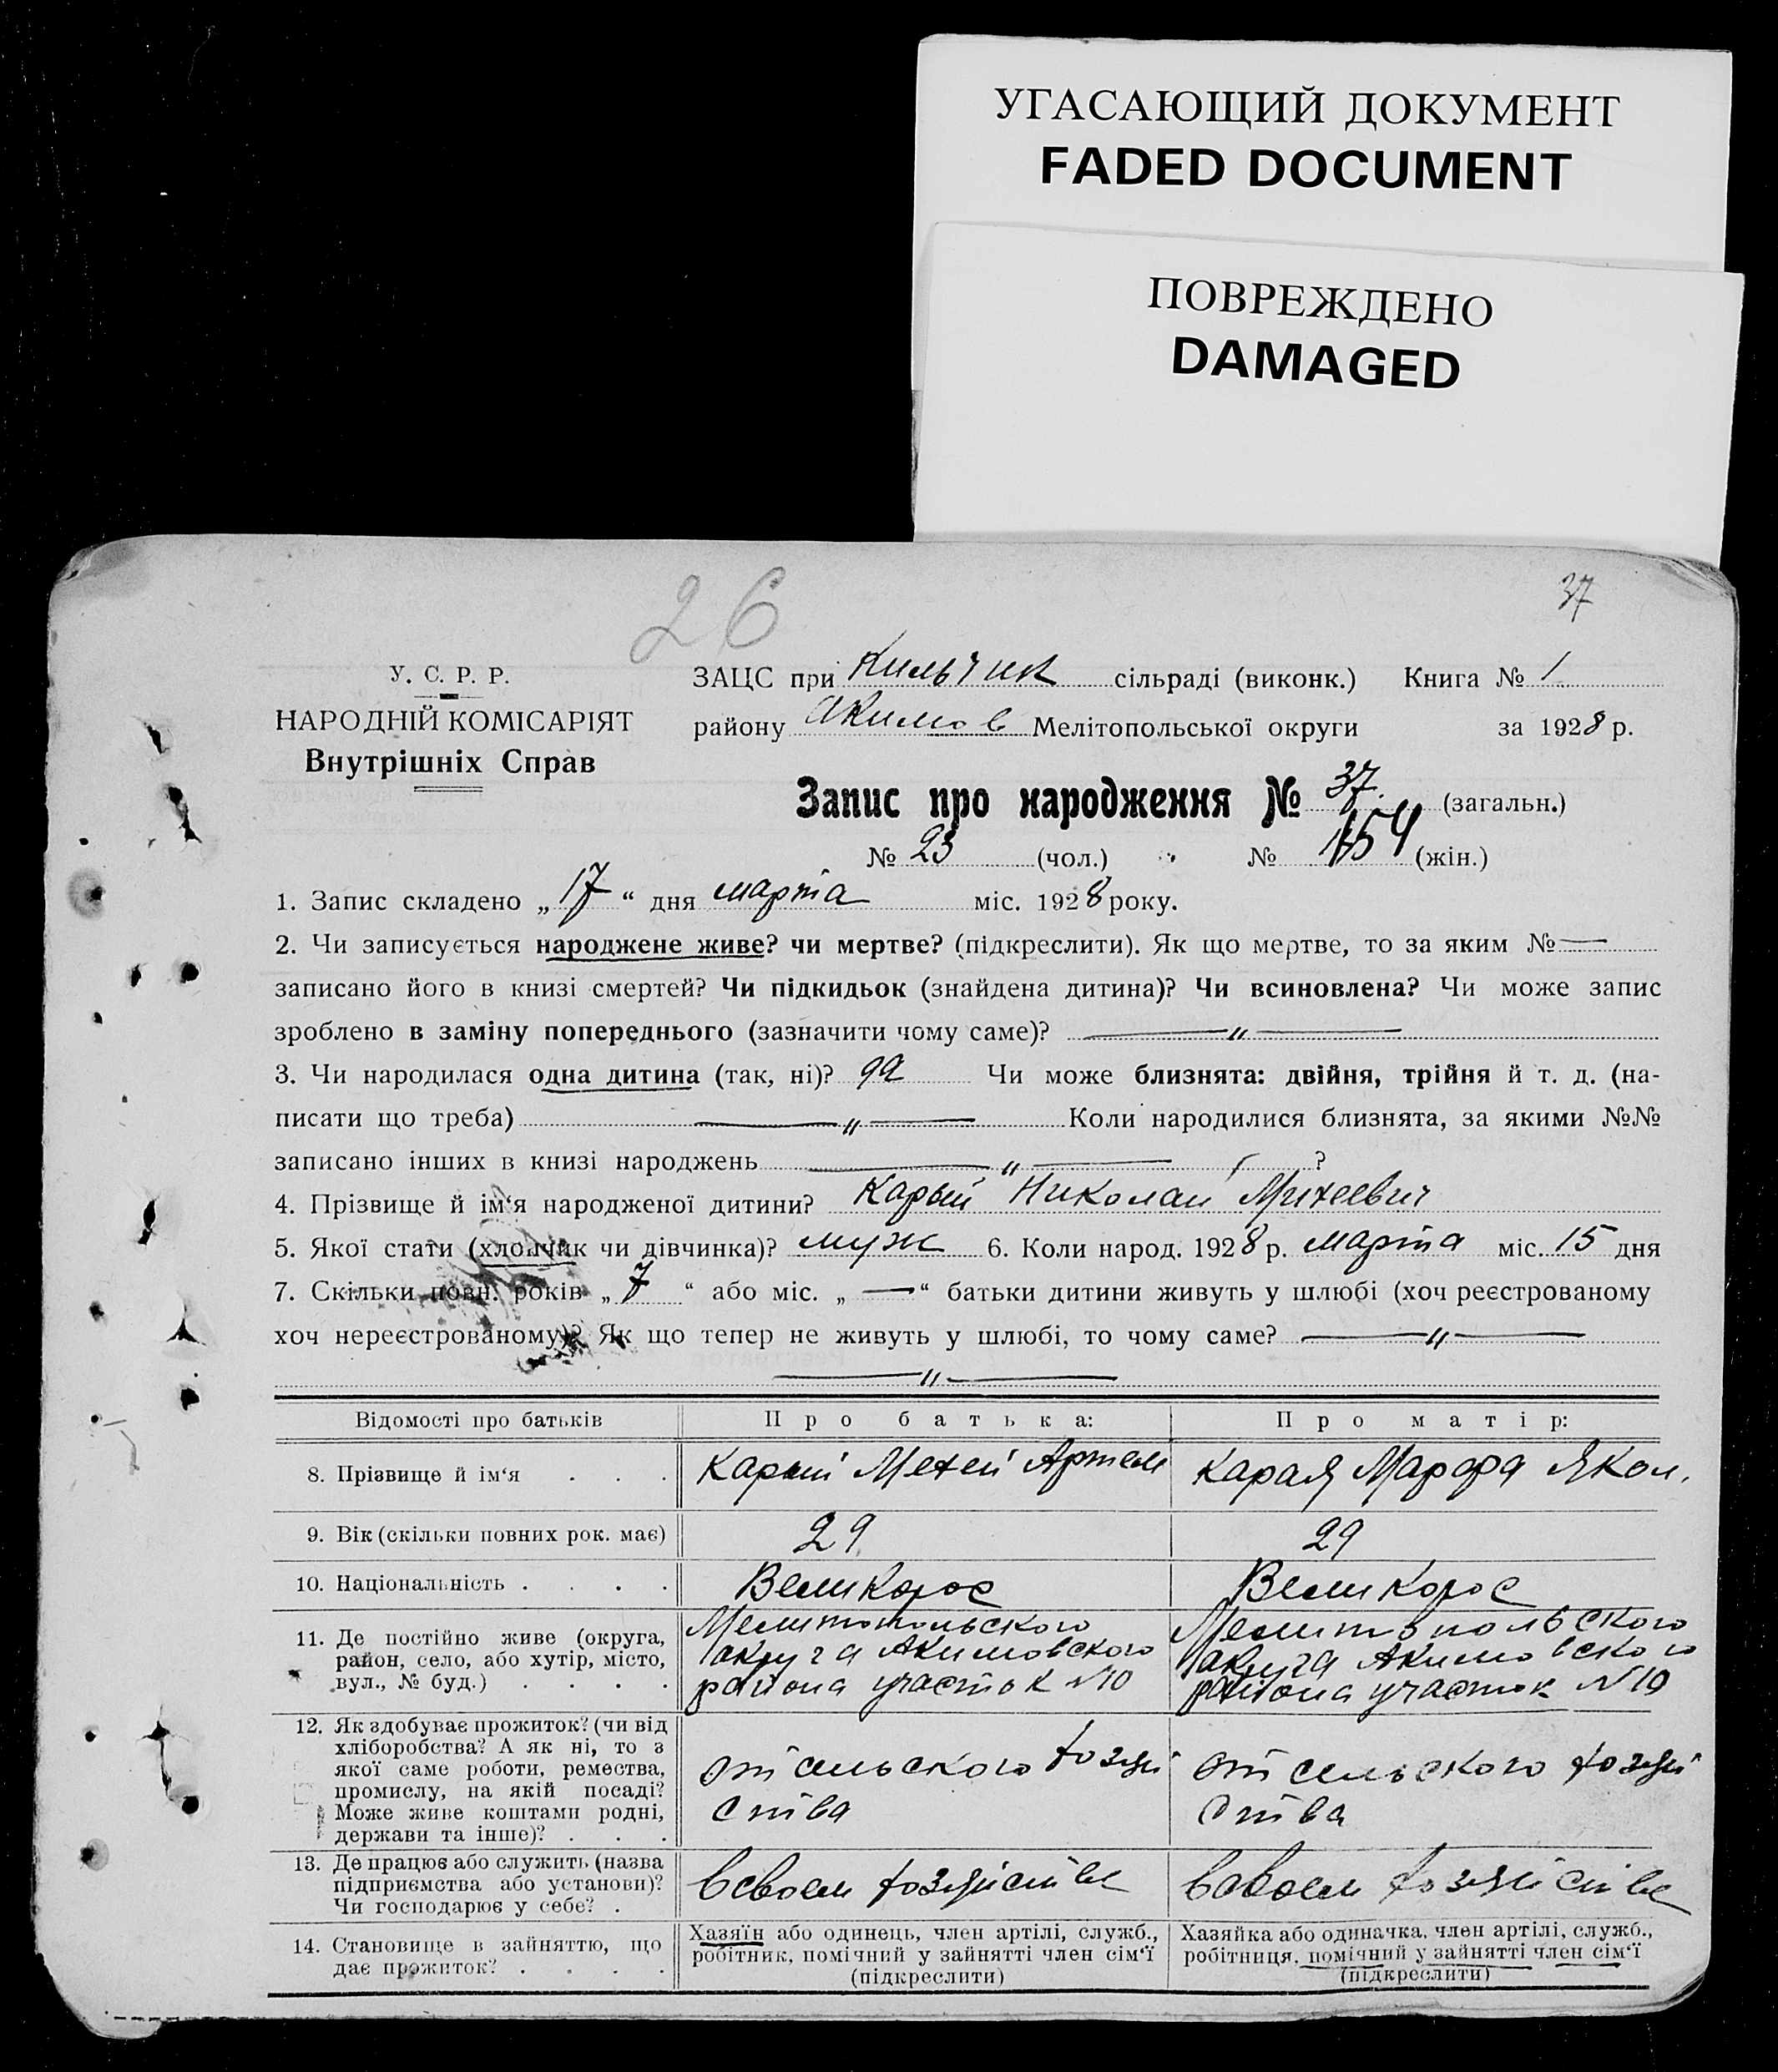 УГАСАЮЩИЙ ДОКУМЕНТ
FADED DOCUMENT
ПОВРЕЖДЕНО
DAMAGED
26
37
У. С. Р. Р.
НАРОДНІЙ КОМІСАРІЯТ
Внутрішніх Справ
ЗАЦС при Кильчик сільраді (виконк.) Книга № 1
району Акимов Мелітопольської округи за 1928 р.
Запис про народження № 37. (загальн.)
№ 23 (чол.) № 154 (жін.)
1. Запис складено „17“ дня марта міс. 1928 року.
2. Чи записується народжене живе? чи мертве? (підкреслити). Як що мертве, то за яким №—
записано його в книзі смертей? Чи підкидьок (знайдена дитина)? Чи всиновлена? Чи може запис
зроблено в заміну попереднього (зазначити чому саме)? —„—
3. Чи народилася одна дитина (так, ні)? да Чи може близнята: двійня, трійня й т. д. (на-
писати що треба) —„— Коли народилися близнята, за якими №№
записано інших в книзі народжень —„— ?
4. Прізвище й ім‘я народженої дитини? Карый Николай Михеевич
5. Якої стати (хлопчик чи дівчинка)? муж 6. Коли народ. 1928 р. марта міс. 15 дня
7. Скільки повн. років „7“ або міс. „—“ батьки дитини живуть у шлюбі (хоч реєстрованому
хоч нереєстрованому)? Як що тепер не живуть у шлюбі, то чому саме? —„—
—„—
Відомості про батьків Про батька: Про матір:
8. Прізвище й ім‘я . . . Карый Михей Артем Карая Марфа Яков.
9. Вік (скільки повних рок. має) 29 29
10. Національність . . . . Великорос Великорос
11. Де постійно живе (округа,
район, село, або хутір, місто,
вул., № буд.) . . . .
Мелитопольского
округа Акимовского
района участок №10
Мелитопольского
округа Акимовского
района участок №10
12. Як здобуває прожиток? (чи від
хліборобства? А як ні, то з
якої саме роботи, ремества,
промислу, на якій посаді?
Може живе коштами родні,
держави та інше)? . . .
от сельского хозяй
ства
от сельского хозяй
ства
13. Де працює або служить (назва
підприємства або установи)?
Чи господарює у себе? .
всвоем хозяйстве
всвоем хозяйстве
14. Становище в зайняттю, що
дає прожиток? . . . .
Хазяїн або одинець, член артілі, служб.,
робітник, помічний у зайнятті член сім‘ї
(підкреслити)
Хазяйка або одиначка, член артілі, служб.,
робітниця, помічний у зайнятті член сім‘ї
(підкреслити)